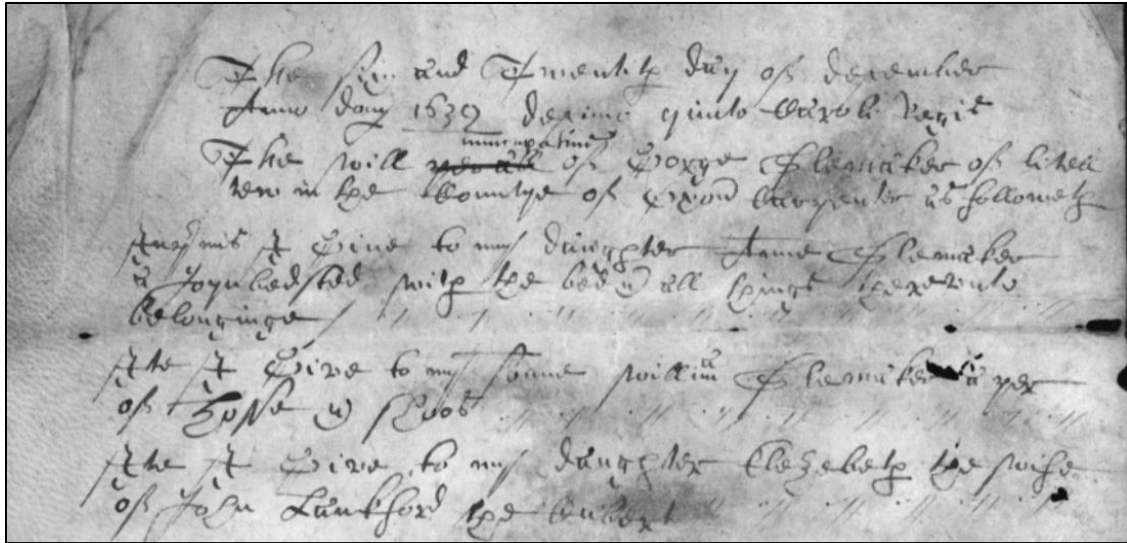 The six and Twentith day of december
Anno dom 1639 decimo quinto Caroli Regis
nuncupative
The will of Gorge Flemaker of litell
tew in the Countye of Oxon Carpenter as followeth
I Give to my daughter Anne Flemaker
a Joynbedsted with the bed all things therevnto
belonginge
Ite I Give to my sonne William Flemaker a per
of Hosse & shoos
Ite I Give to my daughter Elezebeth the wife
of John Lankford the Cubert